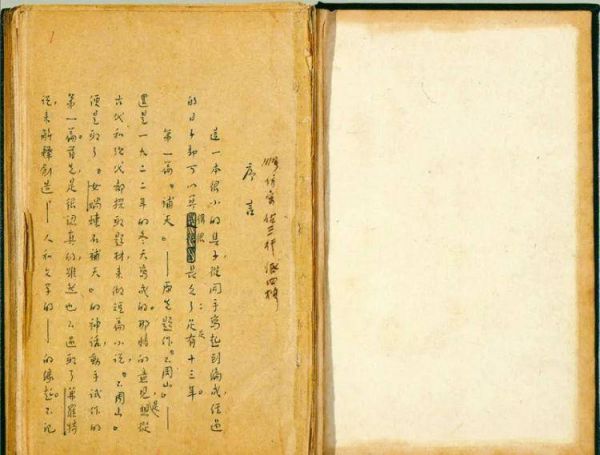 仿宋 佔三行 低四格
序言
這一本很小的集子,從開手寫起到編成,經過
的日子却可以算得很長久了:足足有十三年。
第一篇「補天」——原先題作「不周山」——
還是一九二二年的冬天寫成的。那時的意見,是想從
古代和現代都採取題材,來做短篇小說,「不周山」
便是取了「女媧煉石補天」的神話,動手試作的
第一篇。首先,是很認真的,雖然也不過取了茀羅特
說,來解釋創造——人和文學的——的緣起。不記